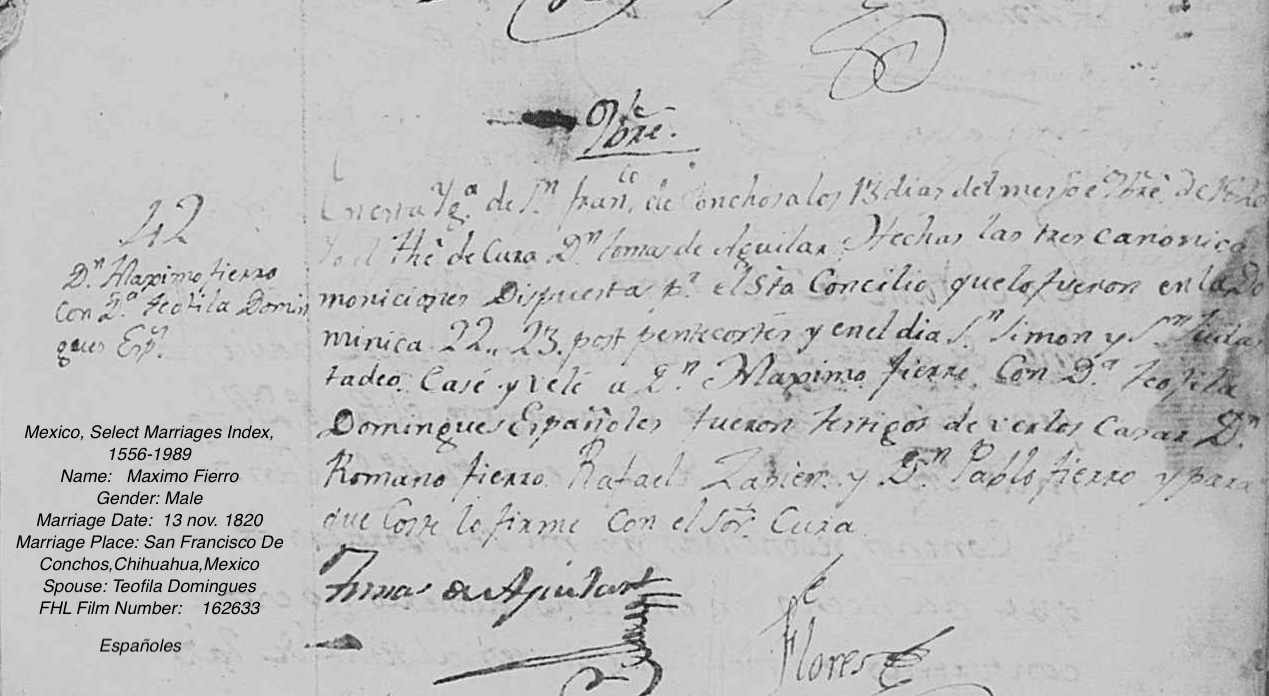 9bre.
42
Dn. Maximo fierro
Con Da. teofila Domin
gues Esp.
En esta Yga. de Sn. franco. de Conchos a los 13 dias del mes de 9bre. de 1820
Yo el The. de Cura Dn. tomas de Aguilar Hechas las tres canonica
moniciones Dispuestas pr. el Sto Concilio que lo fueron en la Do
minica 22,, 23. post pentecostes y en el dia Sn. Simon y Sn. Judas
tadeo. Casé y velé a Dn. Maximo fierro Con Da. teofila
Domingues Españoles fueron testigos de verlos Casar Dn.
Romano fierro Rafael y Dn. Pablo fierro y para
que Coste lo firme Con el Sor. Cura
Tomas de Aguilar
Flores
Mexico, Select Marriages Index,
1556-1989
Name: Maximo Fierro
Gender: Male
Marriage Date: 13 nov. 1820
Marriage Place: San Francisco De
Conchos,Chihuahua,Mexico
Spouse: Teofila Domingues
FHL Film Number: 162633
Españoles